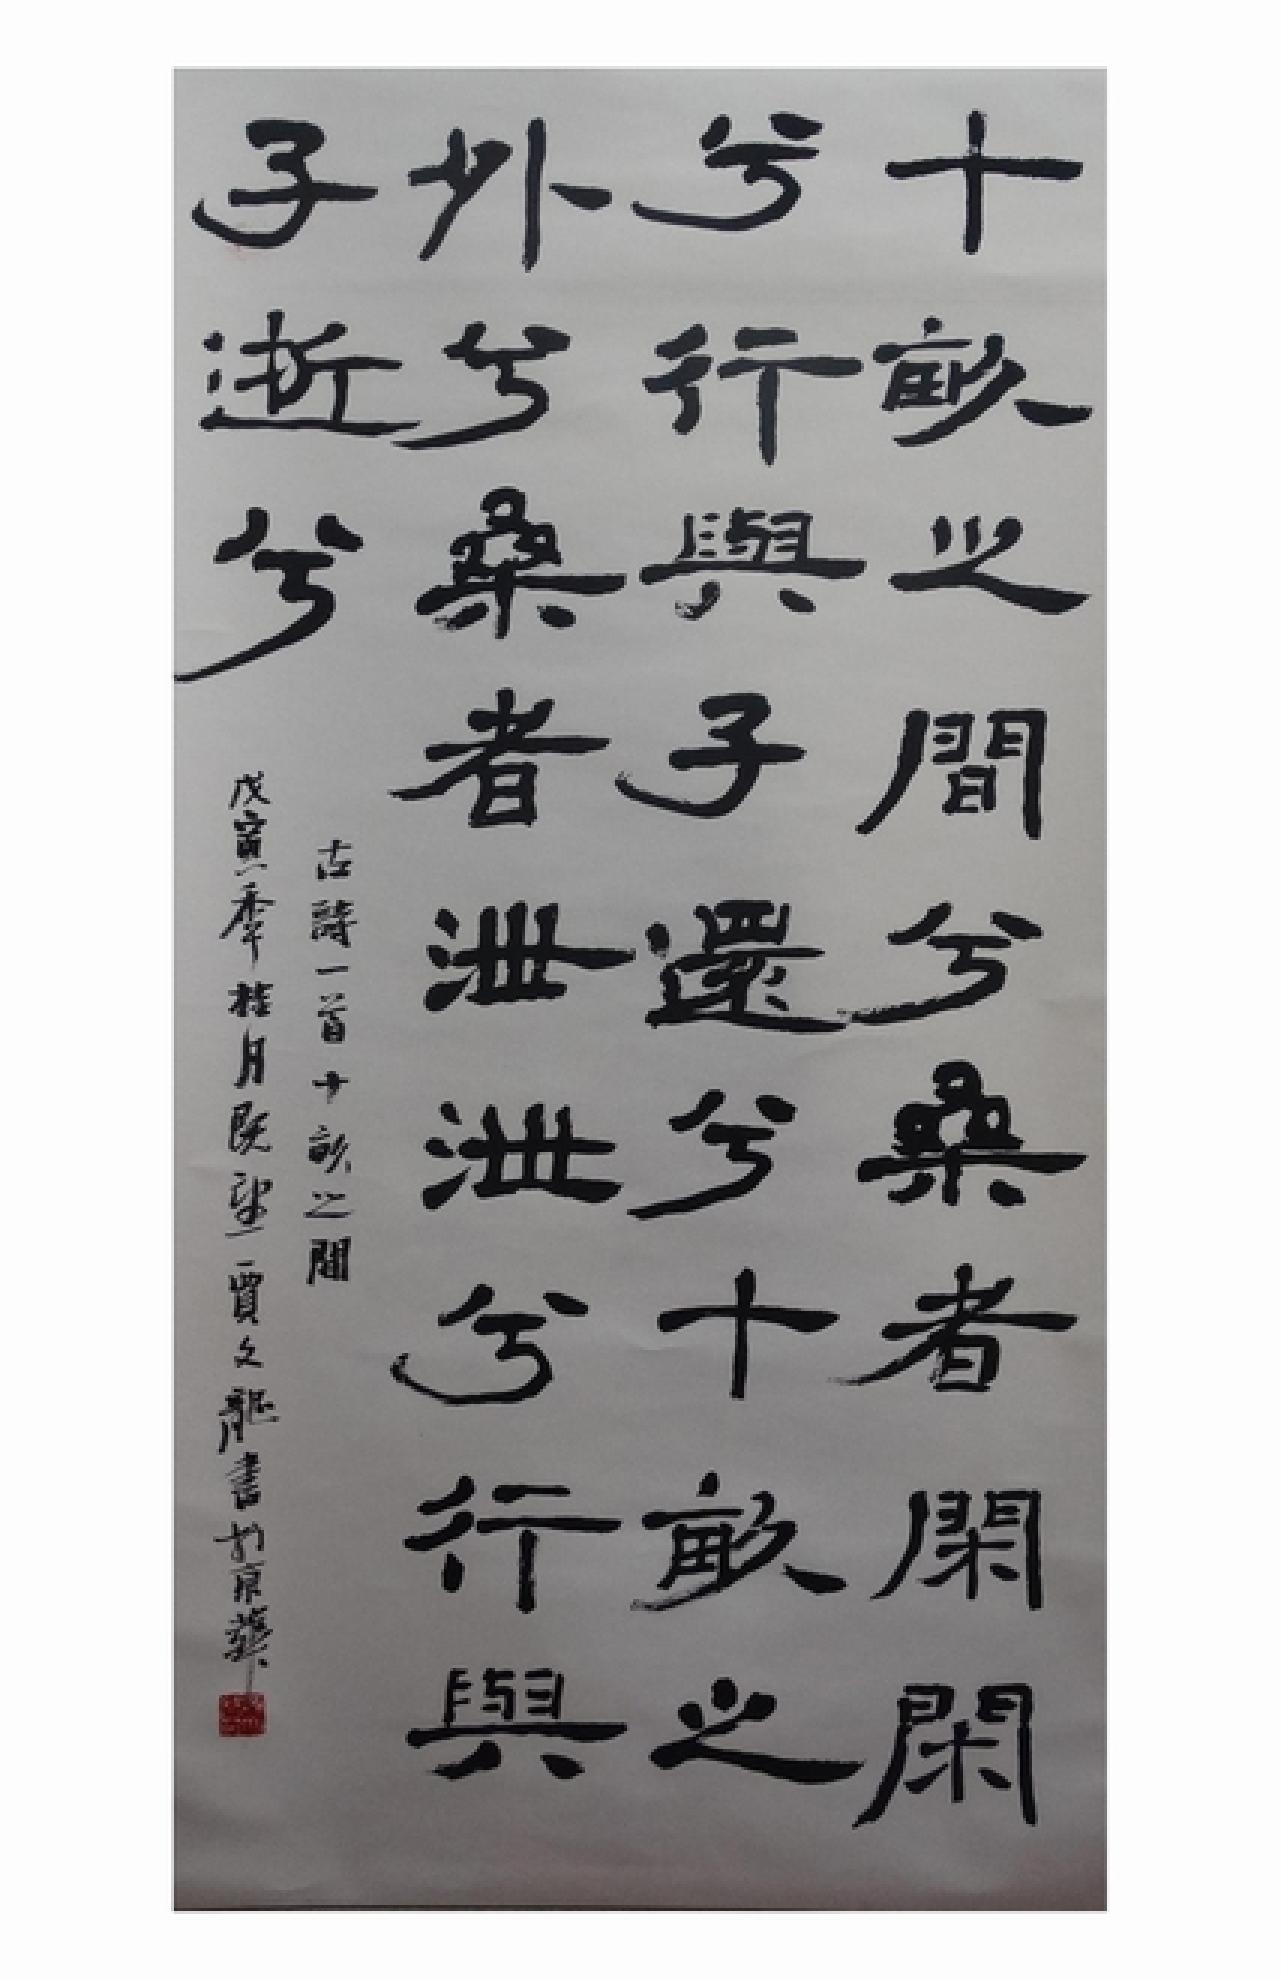 十畝之間兮桑者閑閑
兮行與子還兮十畝之
外兮桑者泄泄兮行與
子逝兮
古詩一首十畝之間
戊寅年桂月既望賈文龍書於京華